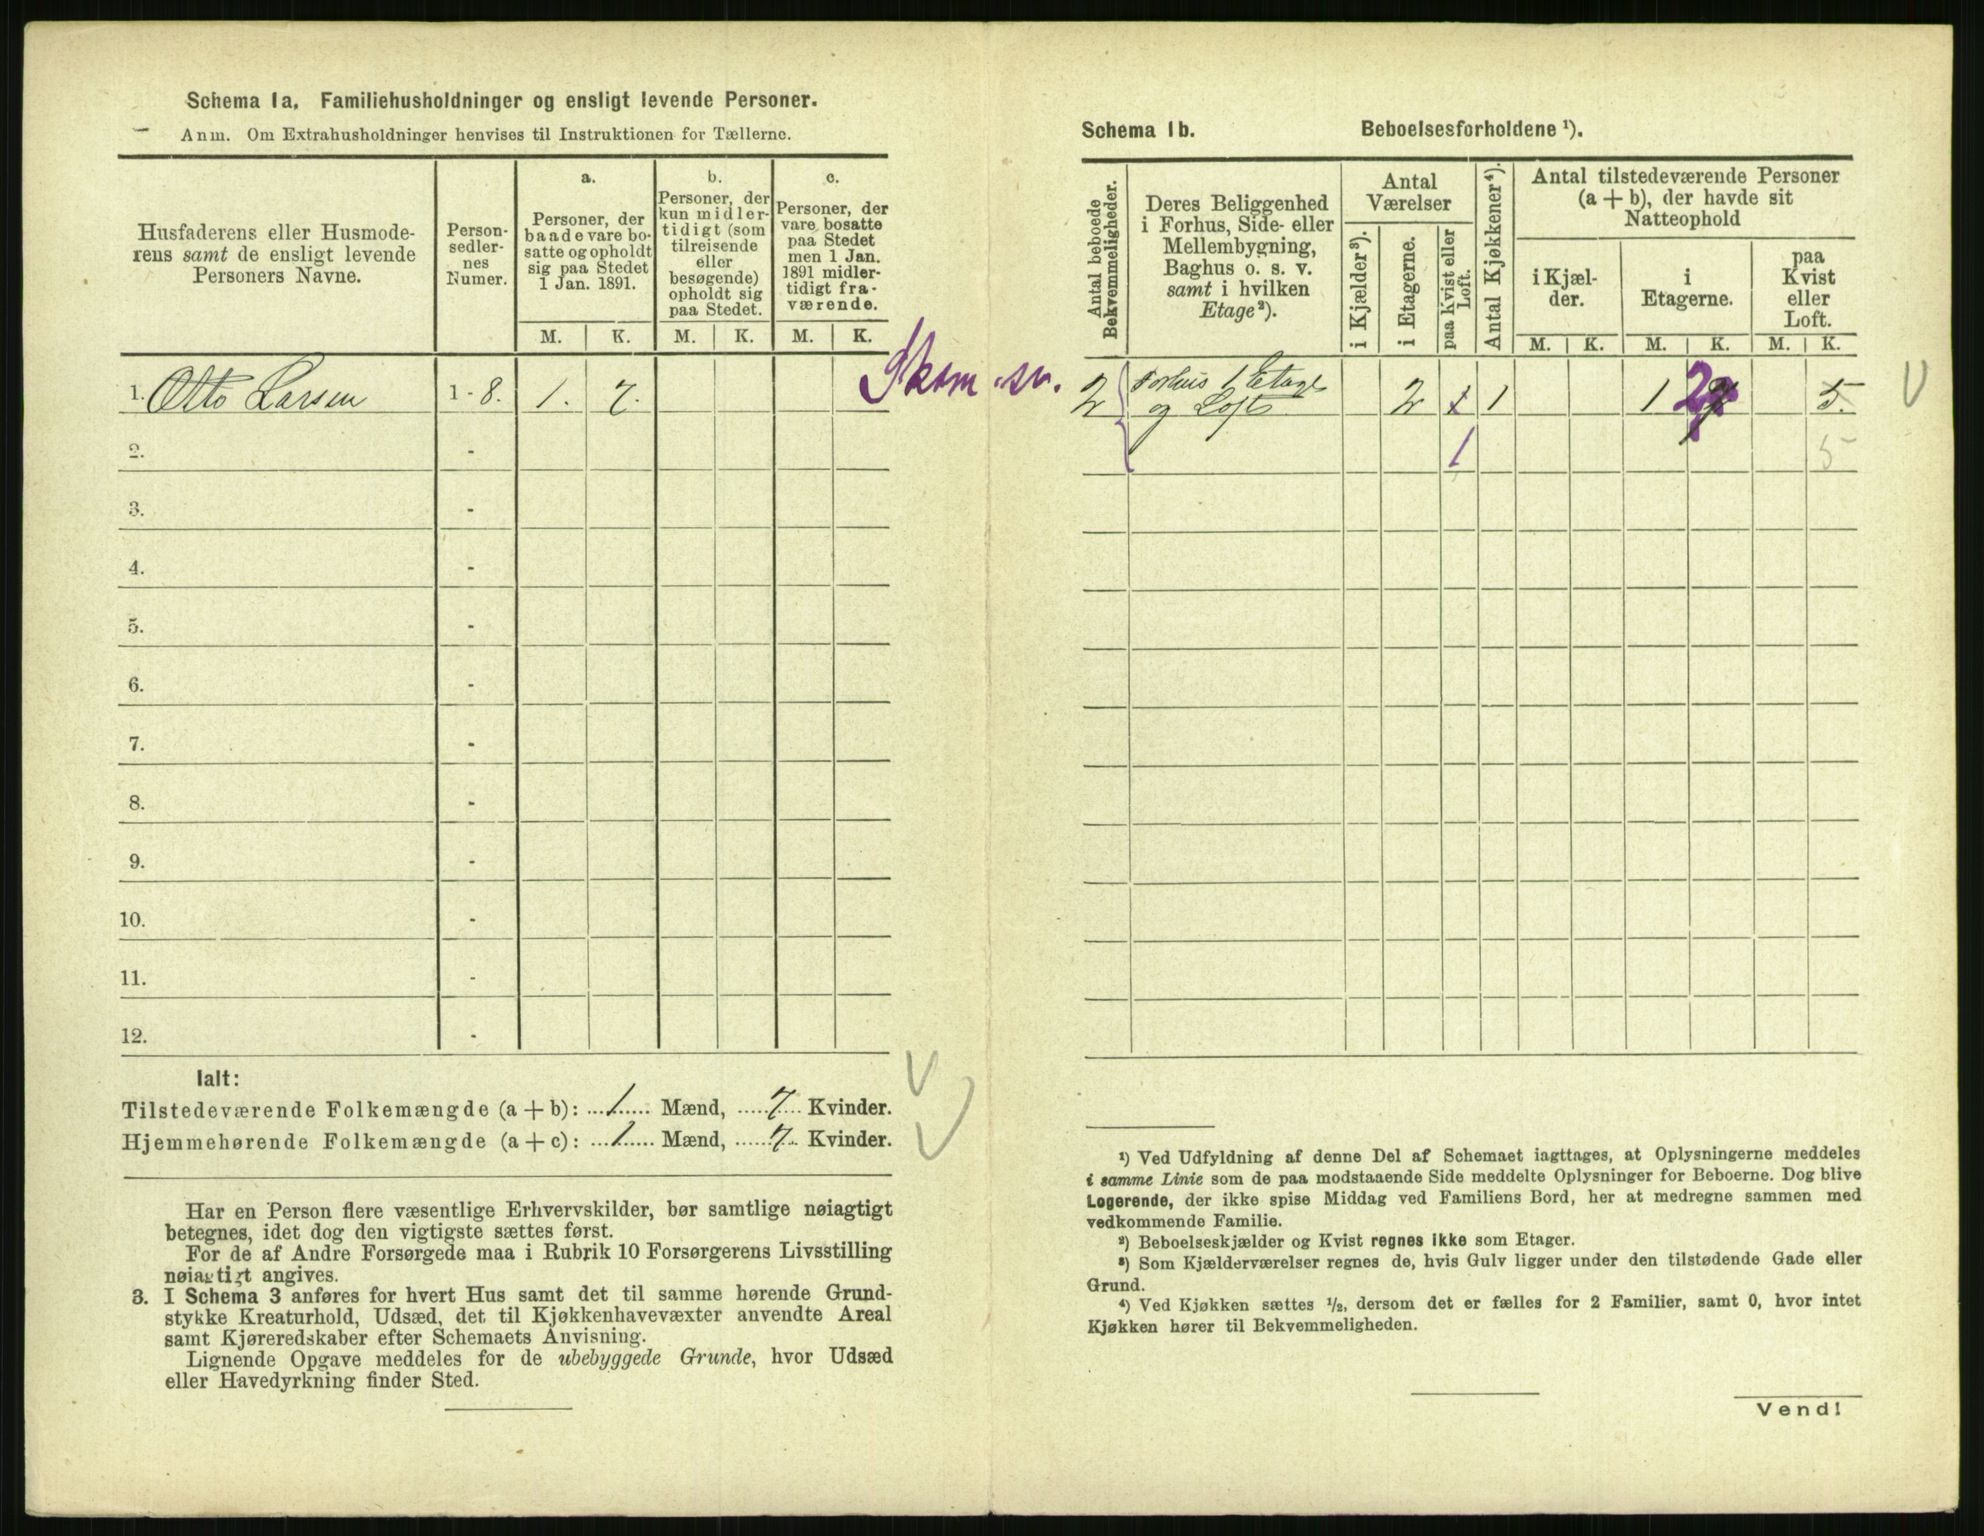 Schema 1a. Familiehusholdninger og ensligt levende Personer.
Anm. Om Extrahusholdninger henvises til Instruktionen for Tællerne.
Husfaderens eller Husmode-
rens samt de ensligt levende
Personers Navne.
Person-
sedler-
nes
Numer.
a.
Personer, der
baade vare bo-
satte og opholdt
sig paa Stedet
1 Jan. 1891.
b.
Personer, der
kun midler-
tidigt (som
tilreisende
eller
besøgende)
opholdt sig
paa Stedet.
c.
Personer, der
vare bosatte
paa Stedet
men 1 Jan.
1891 midler-
tidigt fra-
værende.
M. K. M. K. M. K.
1. Otto Larsen 1 - 8. 1. 7.
2. -
3. -
4. -
5. -
6. -
7. -
8. -
9. -
10. -
11. -
12. -
Ialt:
Tilstedeværende Folkemængde (a + b): 1 Mænd, 7 Kvinder.
Hjemmehørende Folkemængde (a + c): 1 Mænd, 7 Kvinder.
Har en Person flere væsentlige Erhvervskilder, bør samtlige nøiagtigt
betegnes, idet dog den vigtigste sættes først.
For de af Andre Forsørgede maa i Rubrik 10 Forsørgerens Livsstilling
nøiagtigt angives.
3. I Schema 3 anføres for hvert Hus samt det til samme hørende Grund-
stykke Kreaturhold, Udsæd, det til Kjøkkenhavevæxter anvendte Areal
samt Kjøreredskaber efter Schemaets Anvisning.
Lignende Opgave meddeles for de ubebyggede Grunde, hvor Udsæd
eller Havedyrkning finder Sted.
Schema 1b. Beboelsesforholdene ¹).
Antal beboede
Bekvemmeligheder.
Deres Beliggenhed
i Forhus, Side- eller
Mellembygning,
Baghus o. s. v.
samt i hvilken
Etage²).
Antal
Værelser
i Kjælder³).
i Etagerne.
paa Kvist eller
Loft.
Antal Kjøkkener⁴).
Antal tilstedeværende Personer
(a + b), der havde sit
Natteophold
i Kjæl-
der.
i
Etagerne.
paa
Kvist
eller
Loft.
M. K. M. K. M. K.
2 Forhus 1 Etage
og Loft 2 1 1 1 2 5.
1 5
¹) Ved Udfyldning af denne Del af Schemaet iagttages, at Oplysningerne meddeles
i samme Linie som de paa modstaaende Side meddelte Oplysninger for Beboerne. Dog blive
Logerende, der ikke spise Middag ved Familiens Bord, her at medregne sammen med
vedkommende Familie.
²) Beboelseskjælder og Kvist regnes ikke som Etager.
³) Som Kjælderværelser regnes de, hvis Gulv ligger under den tilstødende Gade eller
Grund.
⁴) Ved Kjøkken sættes ½, dersom det er fælles for 2 Familier, samt 0, hvor intet
Kjøkken hører til Bekvemmeligheden.
Vend!